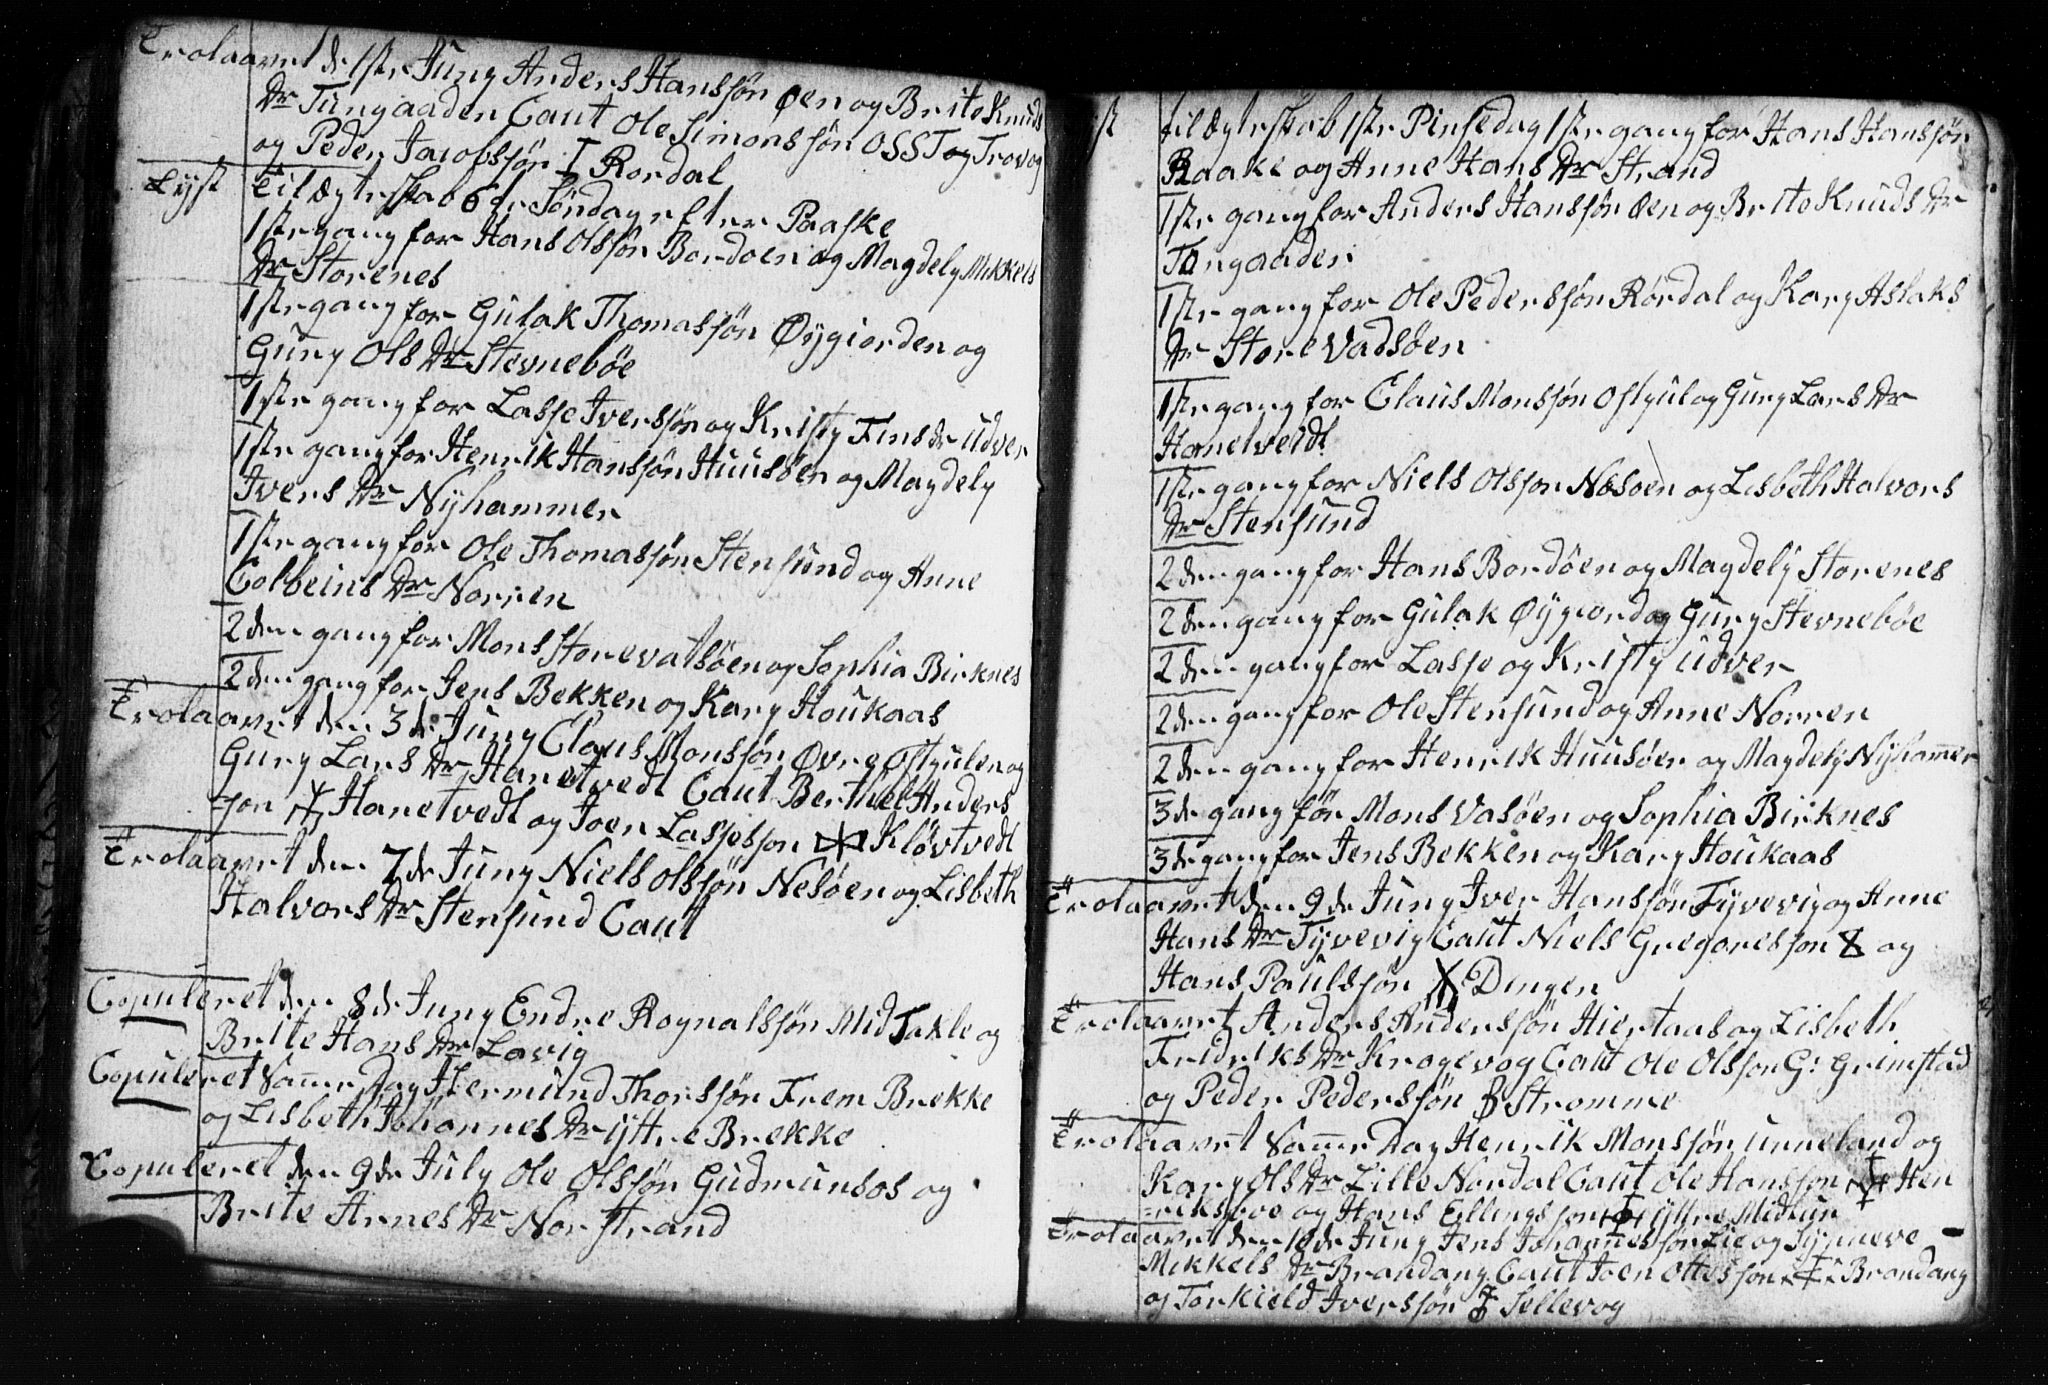 Trolaavet d 1ste Juny Anders Hanssøn Øen og Brite Knuds
Dr Tungaaden Caut Ole Simonssøn OSST og Trovog
og Peder Jacobssøn I Rordal
Lyst Til Ægteskab 6te Søndag efter Paaske
1ste gang for Hans Olssøn Bordøen og Magdely Mikkels
Dr Storenes
1ste gang for Gulak Thomassøn Øygiorden og
Gury Ols Dr Stevnebøe
1ste gang for Lasse Iverssøn og Kristy Fins dr Udver
1ste gang for Henrik Hanssøn Huusøen og Magdely
Ivers Dr Nyhammer
1ste gang for Ole Thomassøn Stensund og Anne
Colbeins Dr Norren
2den gang for Mons Storevatsøen og Sophia Birknes
2den gang for Jens Bekken og Kary Houkaas
Trolaavet den 3de Juny Claus Monssøn Øvre Ostgulen og
Gury Lars Dr Hanetvedt Caut Berthel Anders
son Hanetvedt og Joen Lassesson Kløvtvedt
Trolaavet den 7de Juny Niels Olssøn Nesøen og Lisbeth
Halvors Dr Stensund Caut
Copuleret den 8de Juny Endre Rognalssøn Mid Takle og
Brite Hans Dr Lavig
Copuleret Samme Dag Hermund Thorssøn Frem Brekke
og Lisbeth Johannes Dr yttre Brekke
Copuleret den 9de July Ole Olssøn Gudmunsos og
Brite Arnes Dr Norstrand
st til Ægteskab 1ste Pinsedag 1ste gang for Hans Hanssøn
Raake og Anne Hans Dr Strand
1ste gang for Anders Hanssøn Øen og Brite Knuds Dr
Tongaaden
1ste gang for Ole Pederssøn Rørdal og Kary Aslaks
Dr Store Vadsøen
1ste gang for Claus Monssøn Ostgul og Gury Lars Dr
Hanetveidt
1ste gang for Niels Olsson Næsøen og Lisbeth Halvors
Dr Stensund
2den gang for Hans Bordøen og Magdely Storenes
2den gang for Gulak Øygiord og Gury Stevnebøe
2den gang for Lasse og Kristy Udver
2den gang for Ole Stensund og Anne Norren
2den gang for Henrik Huusøen og Magdely Nyhammer
3de gang før Mons Vasøen og Sophia Birknes
3de gang for Jens Bekken og Kary Houkaas
Trolaavet den 9de Juny Iver Hanssøn Tyvevig og Anne
Hans Dr Tyvevig Caut Niels Gregoresson 8 og
Hans Paulssøn Dingen
Trolaavet Anders Anderssøn Hiertaas og Lisbeth
Fridriks Dr Krogevog Caut Ole Olsson G: Grimstad
og Peder Pederssøn Stromme
Trolaavet Samme Dag Henrik Monssøn Unneland og
Kary Ols Dr Lille Nordal Caut Ole Hansson Hen
=riksboe og Hans Ellingsson yttre Midtun
Trolaavet den 10de Juny Jens Johannesson Lie og Synneve
Mikkels Dr Brandang Caut Joen Ottesson Brandang
og Torkield Iverssøn Sellevog